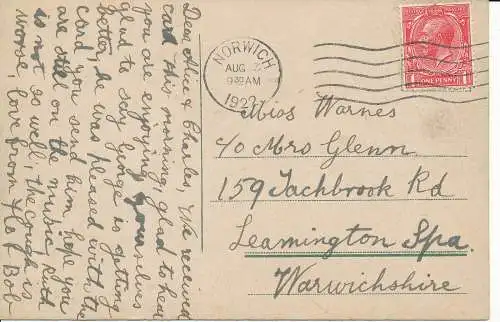 Dear Alice & Charles, We received
card this morning, glad to hear
you are enjoying yourselves
glad to say George is getting
better, he was pleased with the
card you send him, hope you
are still on the music, Ruth
is not so well, the cough is
worse, love from Flo & Bob
NORWICH
AUG
9 30 AM
1922
ONE PENNY
Miss Warnes
c/o Mrs Glenn
159 Tachbrook Rd
Leamington Spa
Warwickshire